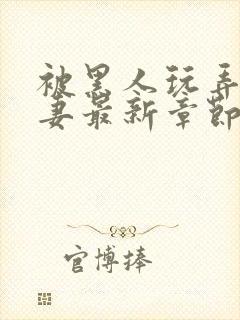 被黑人玩弄
妻最新章節
官博捧